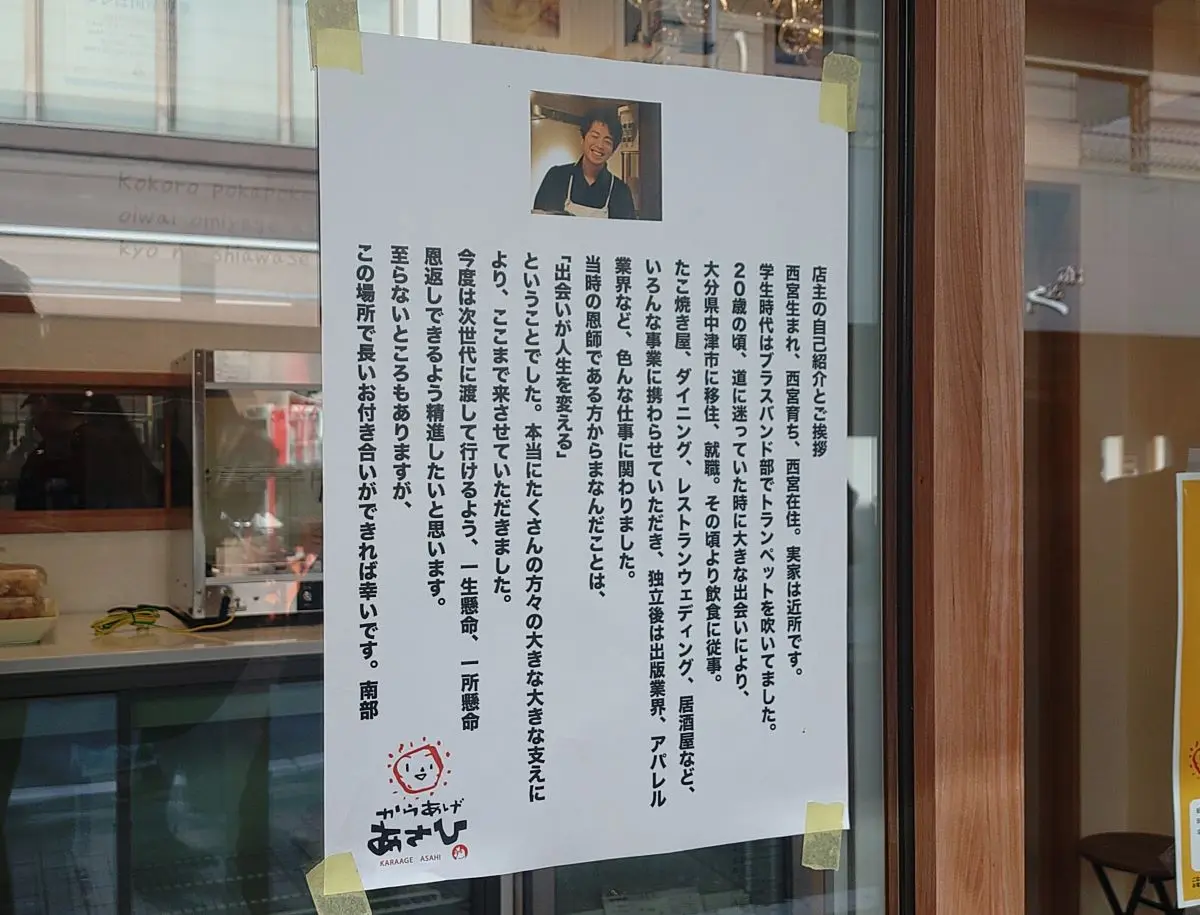 店主の自己紹介とご挨拶
西宮生まれ、西宮育ち、西宮在住。実家は近所です。
学生時代はブラスバンド部でトランペットを吹いてました。
20歳の頃、道に迷っていた時に大きな出会いにより、
大分県中津市に移住、就職。その頃より飲食に従事。
たこ焼き屋、ダイニング、レストランウェディング、居酒屋など、
いろんな事業に携わらせていただき、独立後は出版業界、アパレル
業界など、色んな仕事に関わりました。
当時の恩師である方からまなんだことは、
「出会いが人生を変える」
ということでした。本当にたくさんの方々の大きな大きな支えに
より、ここまで来させていただきました。
今度は次世代に渡して行けるよう、一生懸命、一所懸命
恩返しできるよう精進したいと思います。
至らないところもありますが、
この場所で長いお付き合いができれば幸いです。南部
からあげ
KARAAGE ASAHI
kokoro pokapoka
oiwai omiyage
kyo mo shiawase